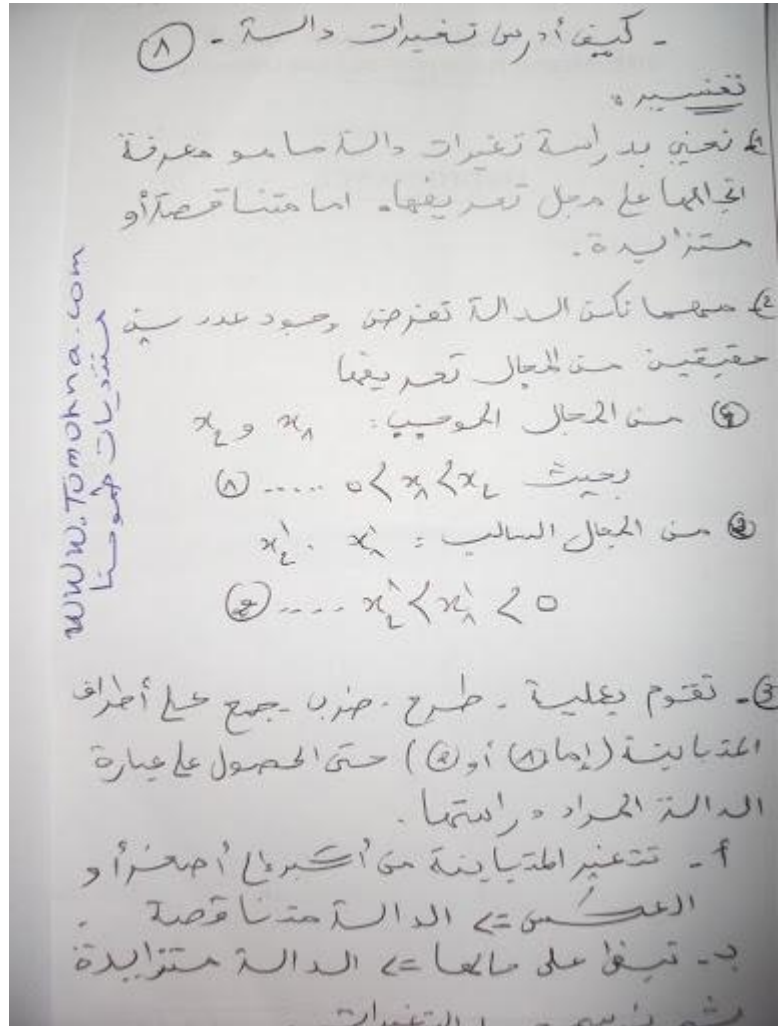 - كيف أدرس تغيرات دالة - ①
تفسير:
① نعني بدراسة تغيرات دالة ما هو معرفة
اتجاهها على مجال تعريفها. اما متناقصة أو
متزايدة.
② مهما تكن الدالة تفرض وجود عددين
حقيقين من المجال تعريفها
① من المجال الموجب: x₁ و x₂
بحيث 0 < x₁ < x₂ ..... ①
② من المجال السالب: x₁' . x₂'
x₂' < x₁' < 0 .... ②
③ - تقوم بعملية - طرح . ضرب - جمع على أطراف
المتباينة (إما ① أو ②) حتى الحصول على عبارة
الدالة المراد دراستها.
أ - تتغير المتباينة من أكبر إلى أصغر أو
العكس => الدالة متناقصة .
ب - تبقى على حالها => الدالة متزايدة
التغيرات
www.Tomohna.com
منتديات طموحنا